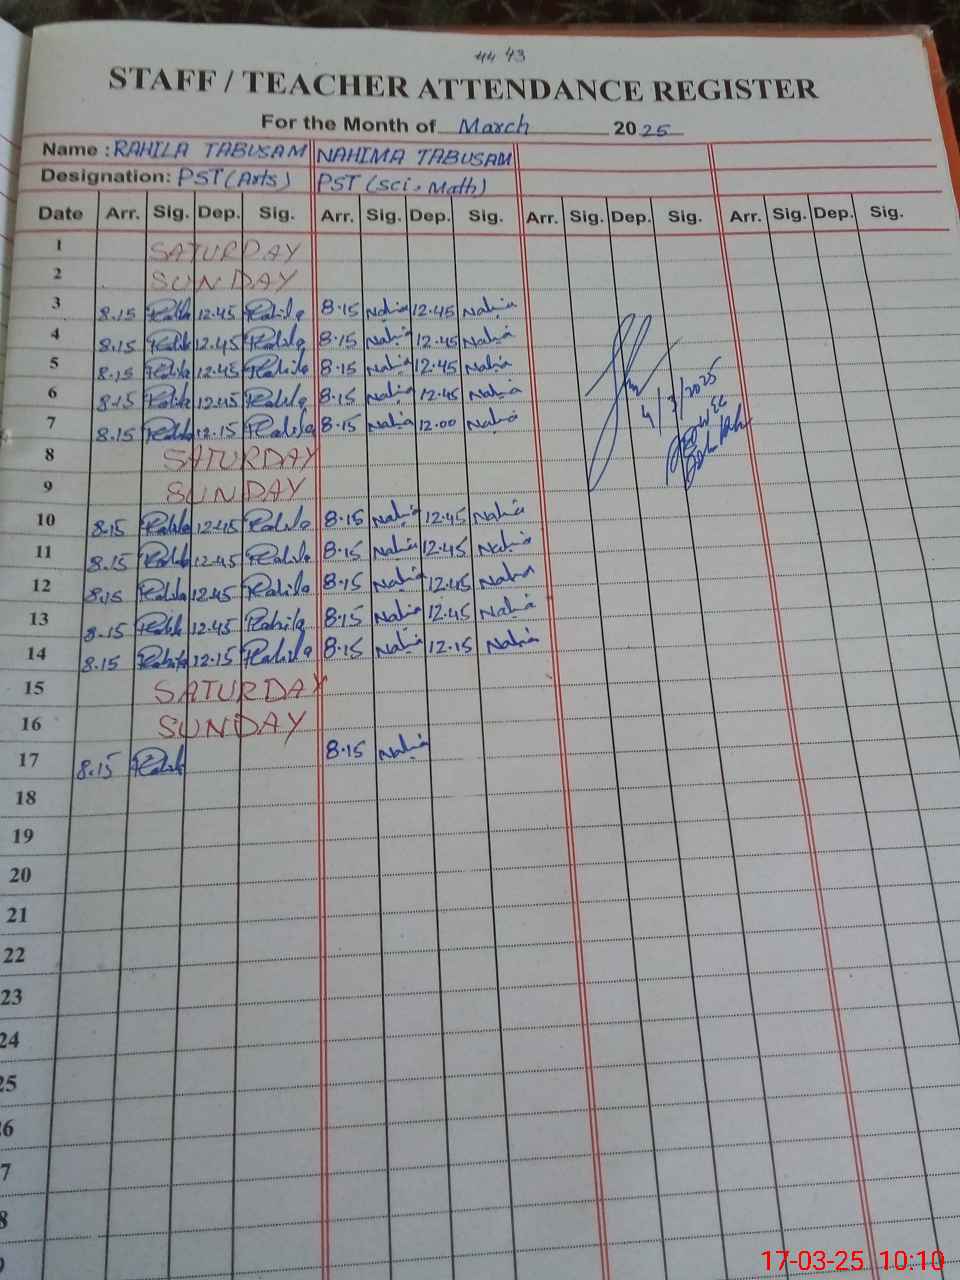 44 43
STAFF / TEACHER ATTENDANCE REGISTER
For the Month of March 2025
Name : RAHILA TABUSAM NAHIMA TABUSAM
Designation: PST (Arts) PST (Sci, Math)
Date Arr. Sig. Dep. Sig. Arr. Sig. Dep. Sig. Arr. Sig. Dep. Sig. Arr. Sig. Dep. Sig.
1 SATURDAY
2 SUNDAY
3 8.15 Rahila 12.45 Rahila 8.15 Nahia 12.45 Nahia
4 8.15 Rahila 12.45 Rahila 8.15 Nahia 12.45 Nahia
5 8.15 Rahila 12.45 Rahila 8.15 Nahia 12.45 Nahia
6 8.15 Rahila 12.45 Rahila 8.15 Nahia 12.45 Nahia
7 8.15 Rahila 12.15 Rahila 8.15 Nahia 12.00 Nahia
4/3/2025
8 SATURDAY
9 SUNDAY
10 8.15 Rahila 12.45 Rahila 8.15 Nahia 12.45 Nahia
11 8.15 Rahila 12.45 Rahila 8.15 Nahia 12.45 Nahia
12 8.15 Rahila 12.45 Rahila 8.15 Nahia 12.45 Nahia
13 8.15 Rahila 12.45 Rahila 8.15 Nahia 12.45 Nahia
14 8.15 Rahila 12.15 Rahila 8.15 Nahia 12.15 Nahia
15 SATURDAY
16 SUNDAY
17 8.15 Rahila 8.15 Nahia
18
19
20
21
22
23
24
25
6
7
8
17-03-25 10:10